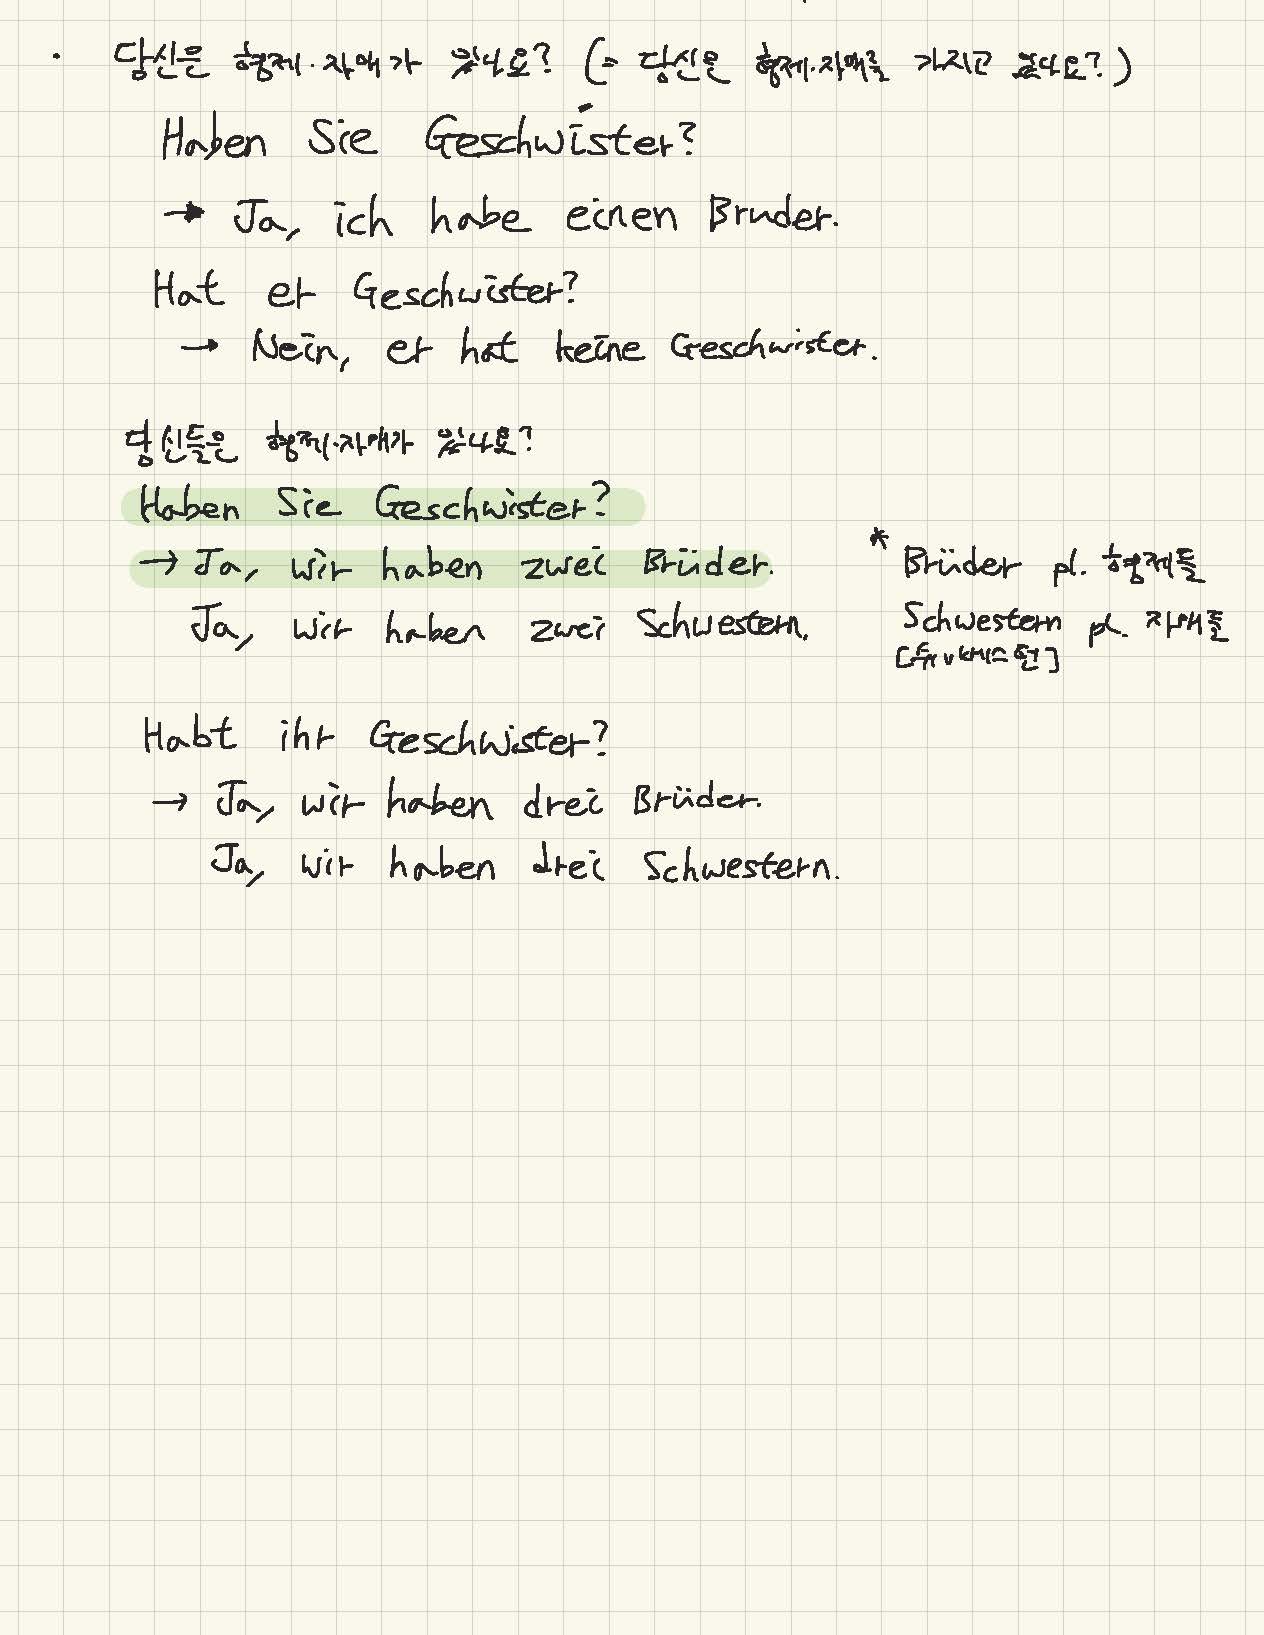 · 당신은 형제·자매가 있나요? (= 당신은 형제·자매를 가지고 있나요?)
Haben Sie Geschwister?
→ Ja, ich habe einen Bruder.
Hat er Geschwister?
→ Nein, er hat keine Geschwister.
당신들은 형제·자매가 있나요?
Haben Sie Geschwister?
→ Ja, wir haben zwei Brüder. * Brüder pl. 형제들
Ja, wir haben zwei Schwestern. Schwestern pl. 자매들
Habt ihr Geschwister?
→ Ja, wir haben drei Brüder.
Ja, wir haben drei Schwestern.